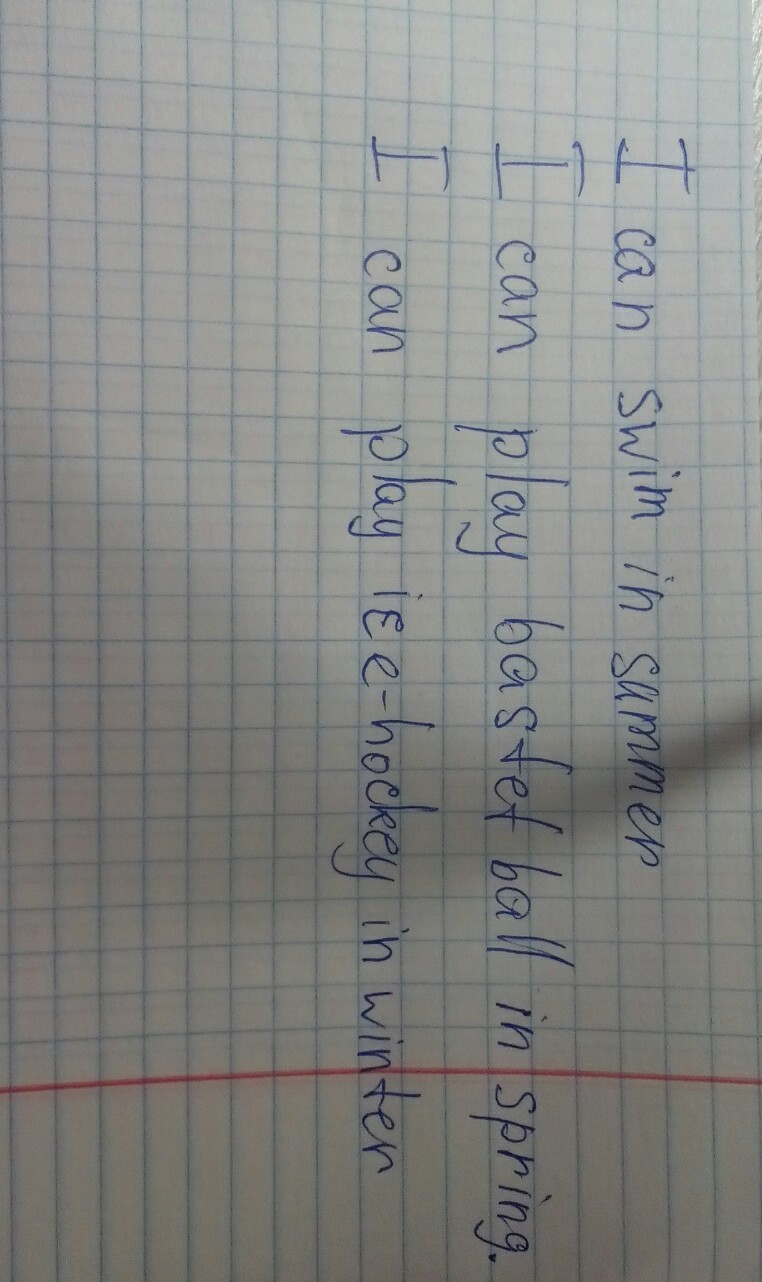 I can swim in summer
I can play bastet ball in spring.
I can play ice-hockey in winter